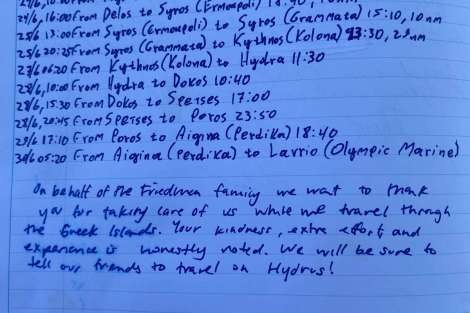 24/6, 16:00 From Delos to Syros (Ermoupoli) 18:40,
25/6 13:00 From Syros (Ermoupoli) to Syros (Grammata) 15:10, 10nm
25/6 20:25 From Syros (Grammata) to Kythnos (Kolona) 23:30, 25nm
27/6 06:20 From Kythnos (Kolona) to Hydra 11:30
28/6, 10:00 From Hydra to Dokos 10:40
28/6, 15:30 From Dokos to Spetses 17:00
28/6, 20:45 From Spetses to Poros 23:50
29/6 17:10 From Poros to Aigina (Perdika) 18:40
30/6 05:20 From Aigina (Perdika) to Lavrio (Olympic Marine)
On behalf of the Friedman family we want to thank
you for taking care of us while we travel through
the Greek Islands. Your kindness, extra effort and
experience is honestly noted. We will be sure to
tell our friends to travel on Hydrus!